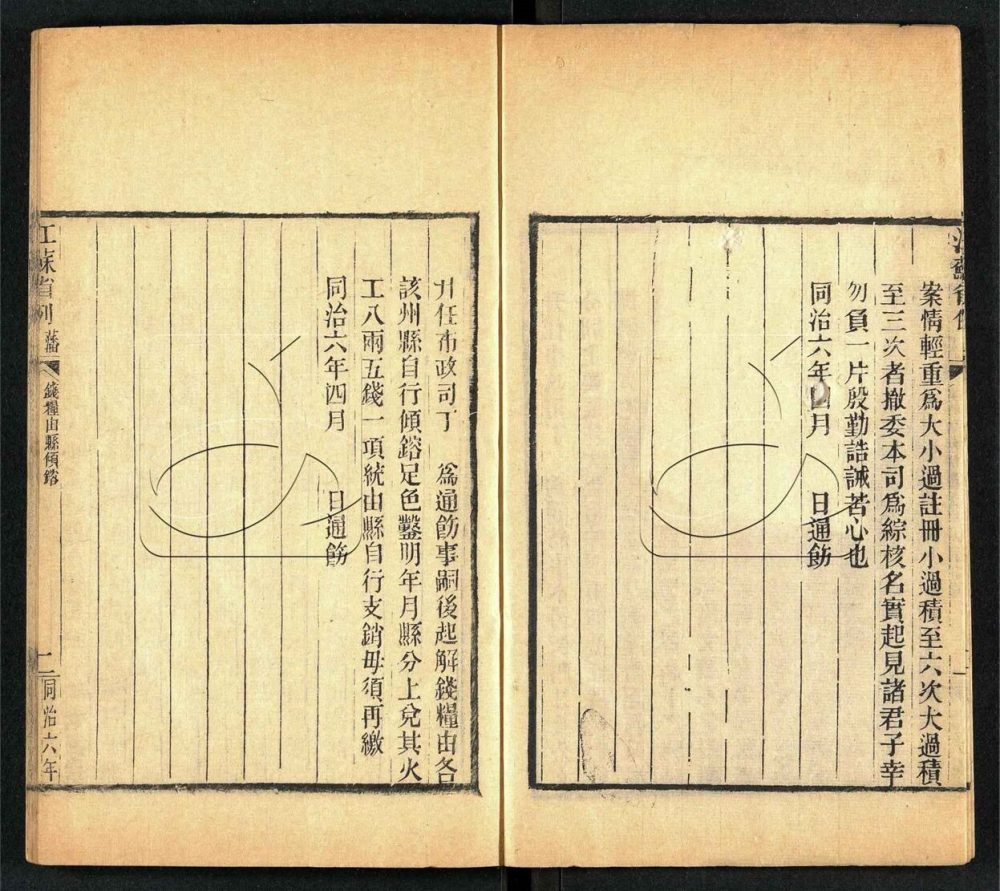 案情輕重爲大小過註冊小過積至六次大過積
至三次者撤委本司爲綜核名實起見諸君子幸
勿負一片殷勤誥誡苦心也
同治六年四月　　日通飭
升任布政司丁　爲通飭事嗣後起解錢糧由各
該州縣自行傾鎔足色鑿明年月縣分上兌其火
工八兩五錢一項統由縣自行支銷毋須再繳
同治六年四月　　日通飭
江蘇省例　藩　錢糧由縣傾鎔　二　同治六年